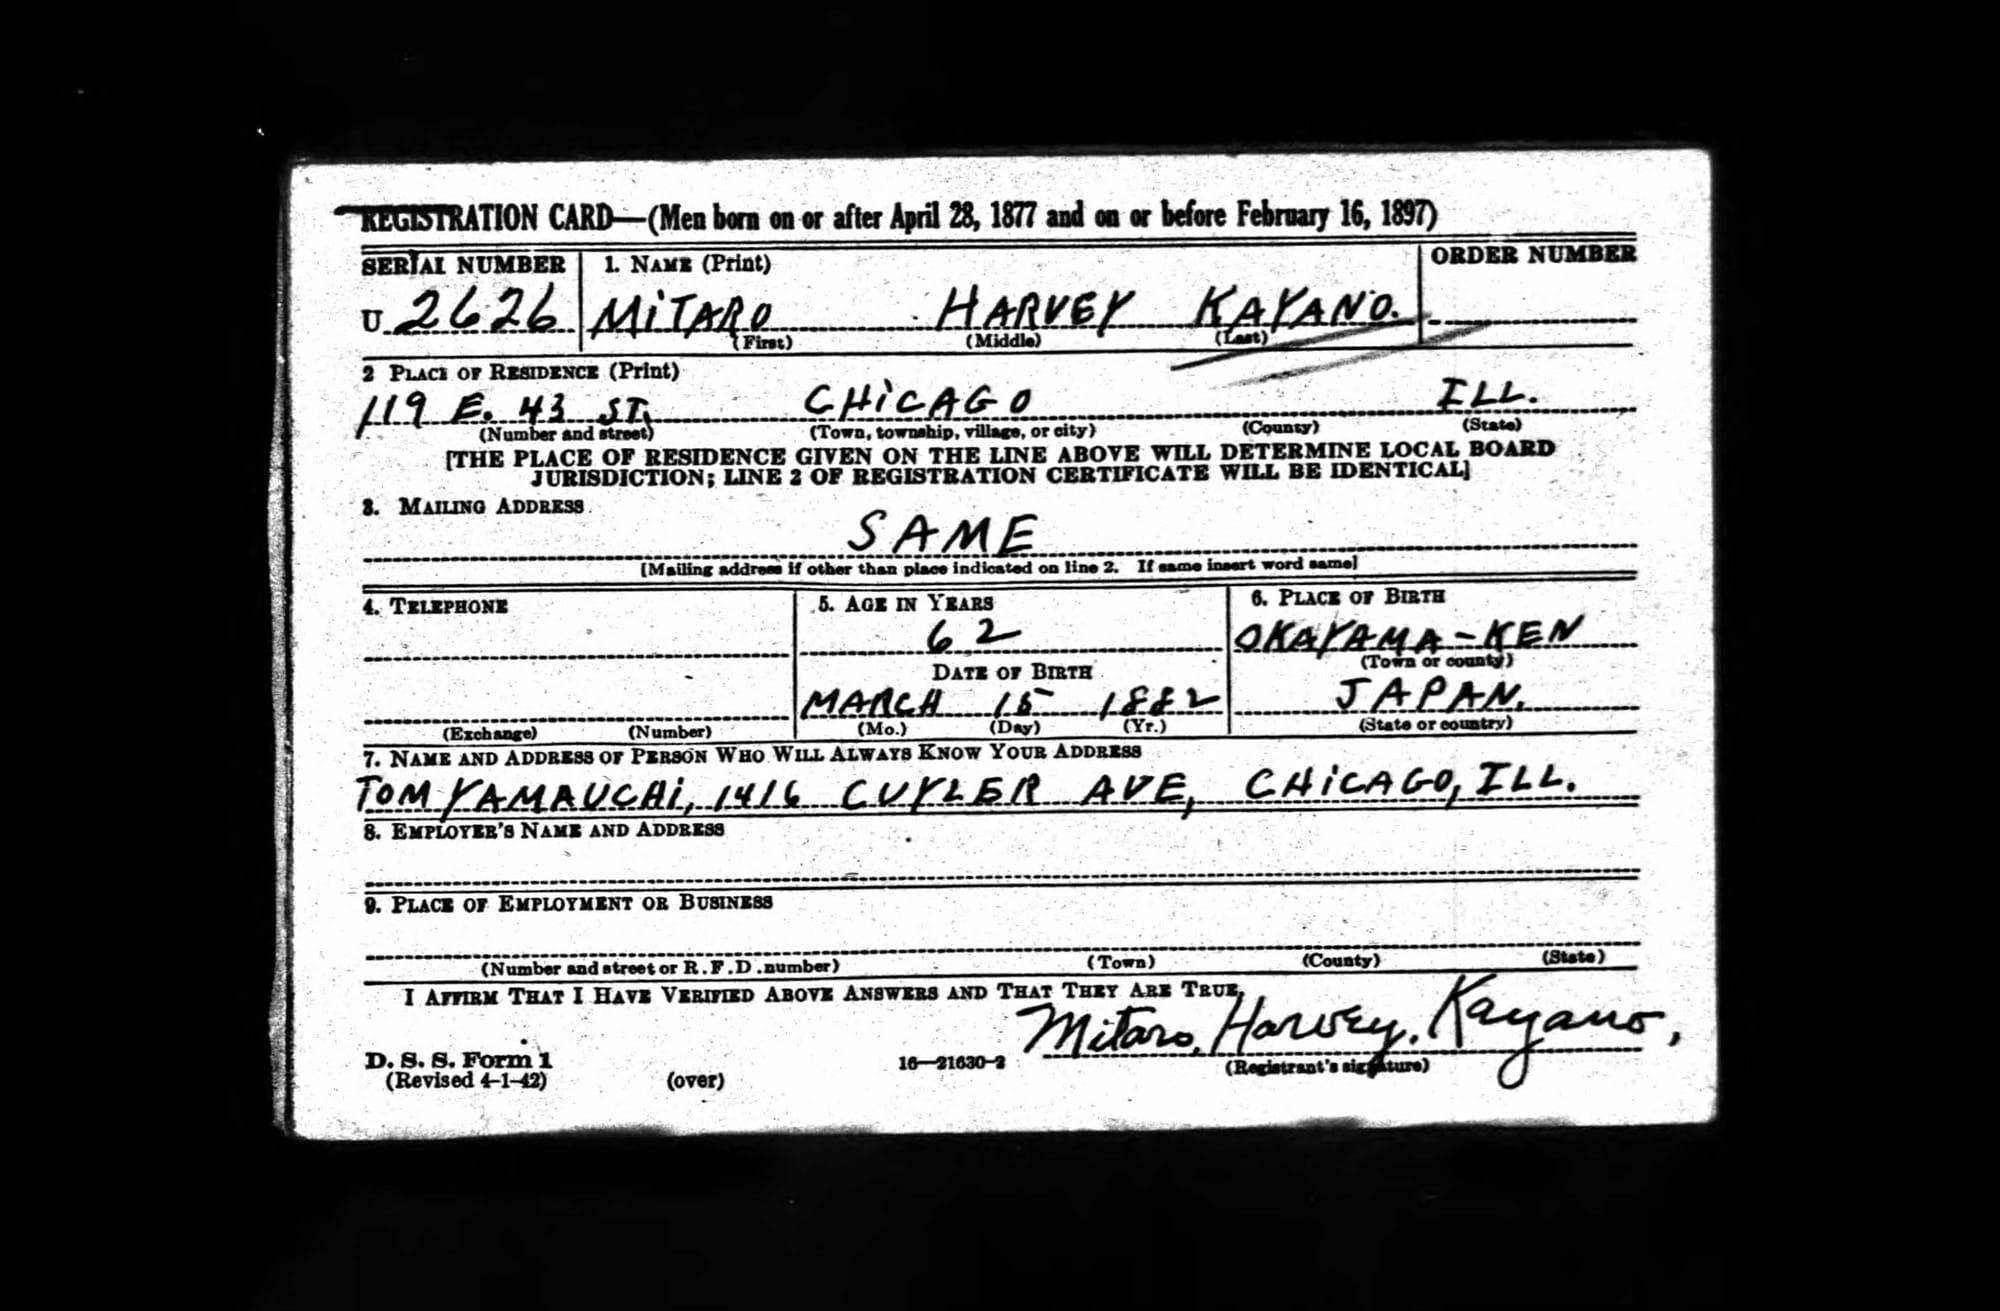 REGISTRATION CARD—(Men born on or after April 28, 1877 and on or before February 16, 1897)
SERIAL NUMBER 1. NAME (Print) ORDER NUMBER
U 2626 MiTARO HARVEY KAYANO.
(First) (Middle) (Last)
2 PLACE OF RESIDENCE (Print)
119 E. 43 ST. CHiCAGO ILL.
(Number and street) (Town, township, village, or city) (County) (State)
[THE PLACE OF RESIDENCE GIVEN ON THE LINE ABOVE WILL DETERMINE LOCAL BOARD
JURISDICTION; LINE 2 OF REGISTRATION CERTIFICATE WILL BE IDENTICAL]
3. MAILING ADDRESS
SAME
[Mailing address if other than place indicated on line 2. If same insert word same]
4. TELEPHONE 5. AGE IN YEARS 6. PLACE OF BIRTH
62 OKAYAMA-KEN
DATE OF BIRTH (Town or county)
MARCH 15 1882 JAPAN.
(Exchange) (Number) (Mo.) (Day) (Yr.) (State or country)
7. NAME AND ADDRESS OF PERSON WHO WILL ALWAYS KNOW YOUR ADDRESS
TOM YAMAUCHi, 1416 CUYLER AVE, CHiCAGO, ILL.
8. EMPLOYER'S NAME AND ADDRESS
9. PLACE OF EMPLOYMENT OR BUSINESS
(Number and street or R.F.D. number) (Town) (County) (State)
I AFFIRM THAT I HAVE VERIFIED ABOVE ANSWERS AND THAT THEY ARE TRUE.
Mitaro, Harvey, Kayano,
D. S. S. Form 1 16—21630-2 (Registrant's signature)
(Revised 4-1-42) (over)